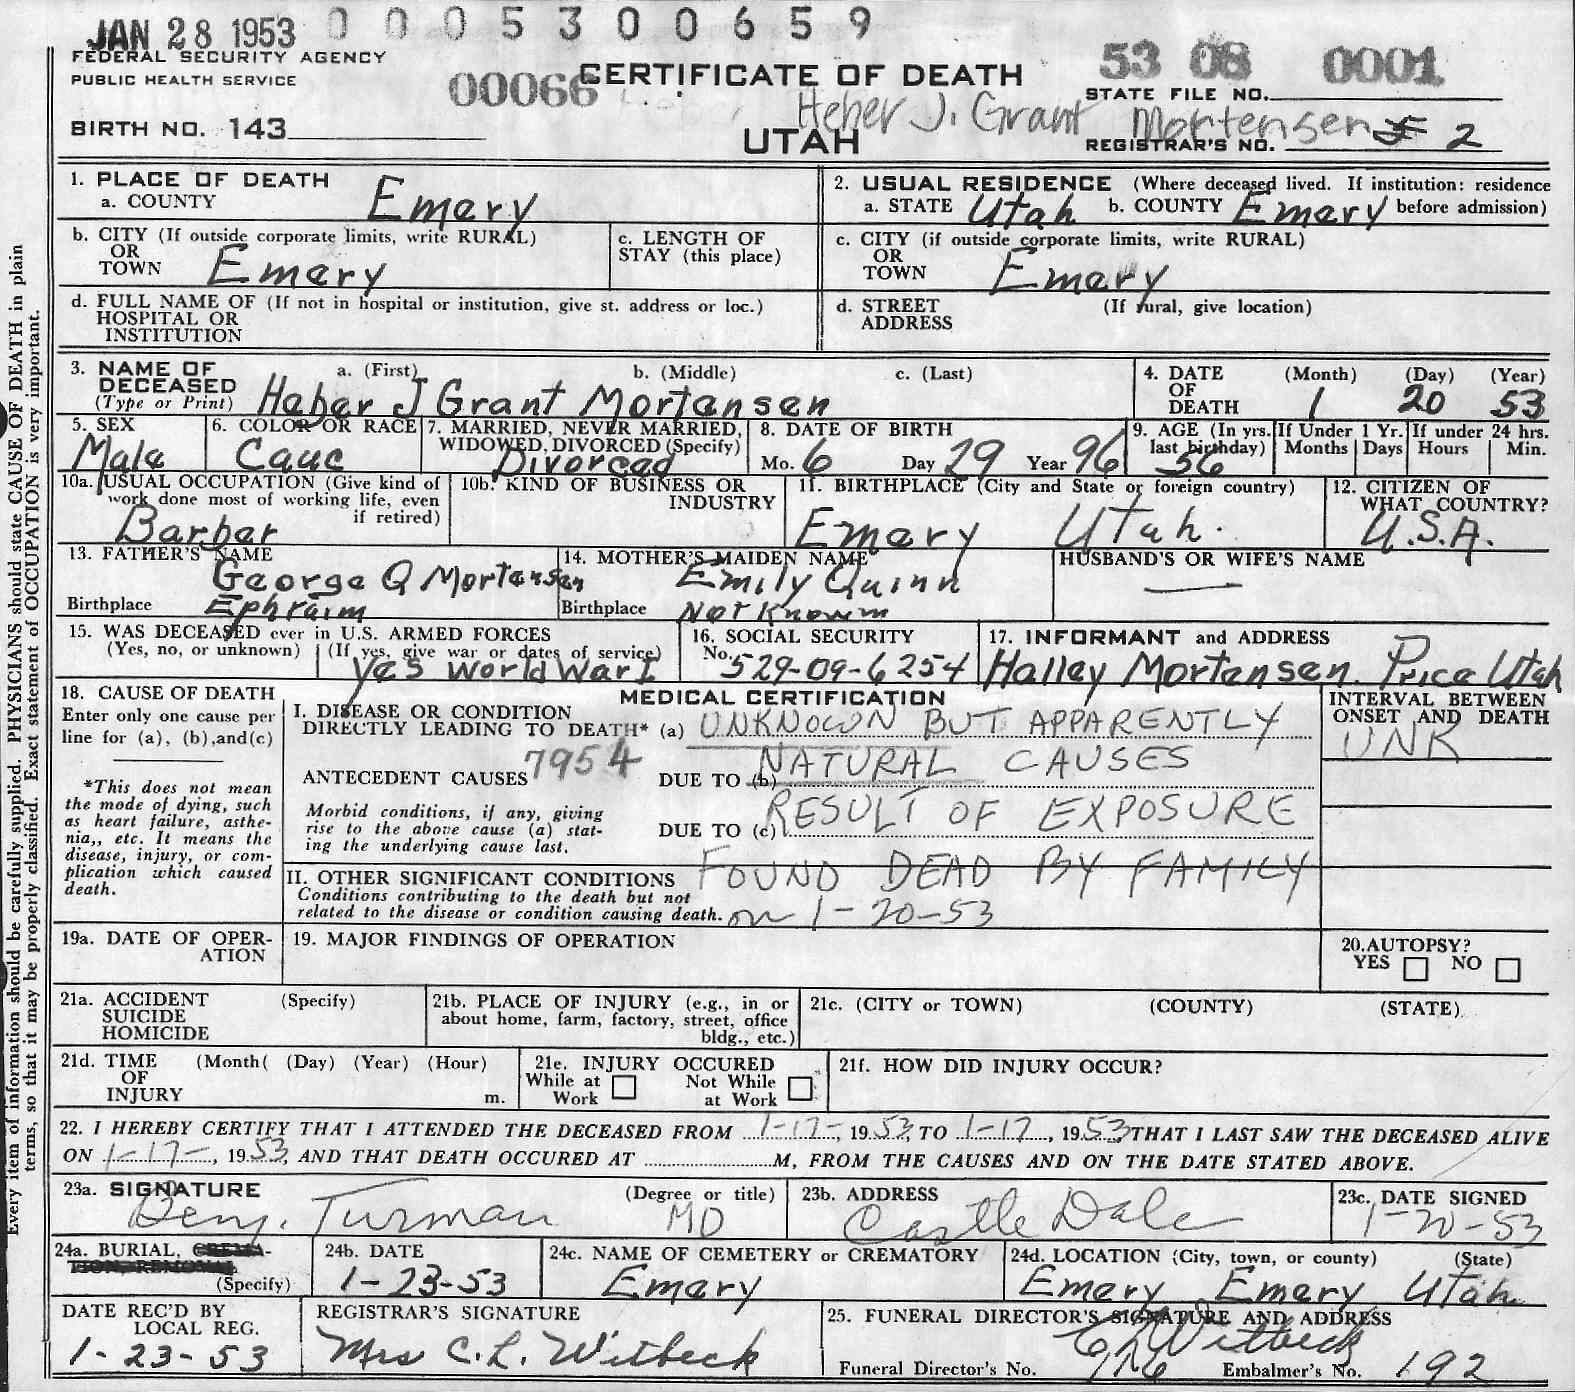 JAN 28 1953 0 0 0 5 3 0 0 6 5 9
FEDERAL SECURITY AGENCY
PUBLIC HEALTH SERVICE
00066 CERTIFICATE OF DEATH 53 08 0001
STATE FILE NO.
Heber J. Grant Mortensen
BIRTH NO. 143 UTAH REGISTRAR'S NO. 2
1. PLACE OF DEATH
a. COUNTY Emery
2. USUAL RESIDENCE (Where deceased lived. If institution: residence
a. STATE Utah b. COUNTY Emery before admission)
b. CITY (If outside corporate limits, write RURAL)
OR
TOWN Emery
c. LENGTH OF
STAY (this place)
c. CITY (if outside corporate limits, write RURAL)
OR
TOWN Emery
d. FULL NAME OF (If not in hospital or institution, give st. address or loc.)
HOSPITAL OR
INSTITUTION
d. STREET (If rural, give location)
ADDRESS
3. NAME OF a. (First) b. (Middle) c. (Last)
DECEASED
(Type or Print) Heber J Grant Mortensen
4. DATE (Month) (Day) (Year)
OF
DEATH 1 20 53
5. SEX
Male
6. COLOR OR RACE
Cauc
7. MARRIED, NEVER MARRIED,
WIDOWED, DIVORCED (Specify)
Divorced
8. DATE OF BIRTH
Mo. 6 Day 29 Year 96
9. AGE (In yrs.
last birthday)
56
If Under 1 Yr.
Months Days
If under 24 hrs.
Hours Min.
10a. USUAL OCCUPATION (Give kind of
work done most of working life, even
if retired)
Barber
10b. KIND OF BUSINESS OR
INDUSTRY
11. BIRTHPLACE (City and State or foreign country)
Emery Utah.
12. CITIZEN OF
WHAT COUNTRY?
U.S.A.
13. FATHER'S NAME
George Q Mortensen
Birthplace Ephraim
14. MOTHER'S MAIDEN NAME
Emily Quinn
Birthplace Not Known
HUSBAND'S OR WIFE'S NAME
15. WAS DECEASED ever in U.S. ARMED FORCES
(Yes, no, or unknown) (If yes, give war or dates of service)
Yes World War I
16. SOCIAL SECURITY
No. 529-09-6254
17. INFORMANT and ADDRESS
Halley Mortensen. Price Utah
18. CAUSE OF DEATH
Enter only one cause per
line for (a), (b),and(c)
*This does not mean
the mode of dying, such
as heart failure, asthe-
nia,, etc. It means the
disease, injury, or com-
plication which caused
death.
MEDICAL CERTIFICATION
I. DISEASE OR CONDITION
DIRECTLY LEADING TO DEATH* (a) UNKNOWN BUT APPARENTLY
ANTECEDENT CAUSES 7954 DUE TO (b) NATURAL CAUSES
Morbid conditions, if any, giving
rise to the above cause (a) stat-
ing the underlying cause last.
DUE TO (c) RESULT OF EXPOSURE
FOUND DEAD BY FAMILY
II. OTHER SIGNIFICANT CONDITIONS
Conditions contributing to the death but not
related to the disease or condition causing death. on 1-20-53
INTERVAL BETWEEN
ONSET AND DEATH
UNK
19a. DATE OF OPER-
ATION
19. MAJOR FINDINGS OF OPERATION
20. AUTOPSY?
YES NO
21a. ACCIDENT (Specify)
SUICIDE
HOMICIDE
21b. PLACE OF INJURY (e.g., in or
about home, farm, factory, street, office
bldg., etc.)
21c. (CITY or TOWN) (COUNTY) (STATE)
21d. TIME (Month( (Day) (Year) (Hour)
OF
INJURY m.
21e. INJURY OCCURED
While at Not While
Work at Work
21f. HOW DID INJURY OCCUR?
22. I HEREBY CERTIFY THAT I ATTENDED THE DECEASED FROM 1-17-, 1953, TO 1-17, 1953 THAT I LAST SAW THE DECEASED ALIVE
ON 1-17-, 1953, AND THAT DEATH OCCURED AT M, FROM THE CAUSES AND ON THE DATE STATED ABOVE.
23a. SIGNATURE (Degree or title)
Benj. Turman MD
23b. ADDRESS
Castle Dale
23c. DATE SIGNED
1-20-53
24a. BURIAL, CREMA-
TION, REMOVAL
(Specify)
24b. DATE
1-23-53
24c. NAME OF CEMETERY or CREMATORY
Emery
24d. LOCATION (City, town, or county) (State)
Emery Emery Utah
DATE REC'D BY
LOCAL REG.
1-23-53
REGISTRAR'S SIGNATURE
Mrs C. L. Witbeck
25. FUNERAL DIRECTOR'S SIGNATURE AND ADDRESS
Witbeck
Funeral Director's No. Embalmer's No. 192
Every item of information should be carefully supplied. PHYSICIANS should state CAUSE OF DEATH in plain
terms, so that it may be properly classified. Exact statement of OCCUPATION is very important.